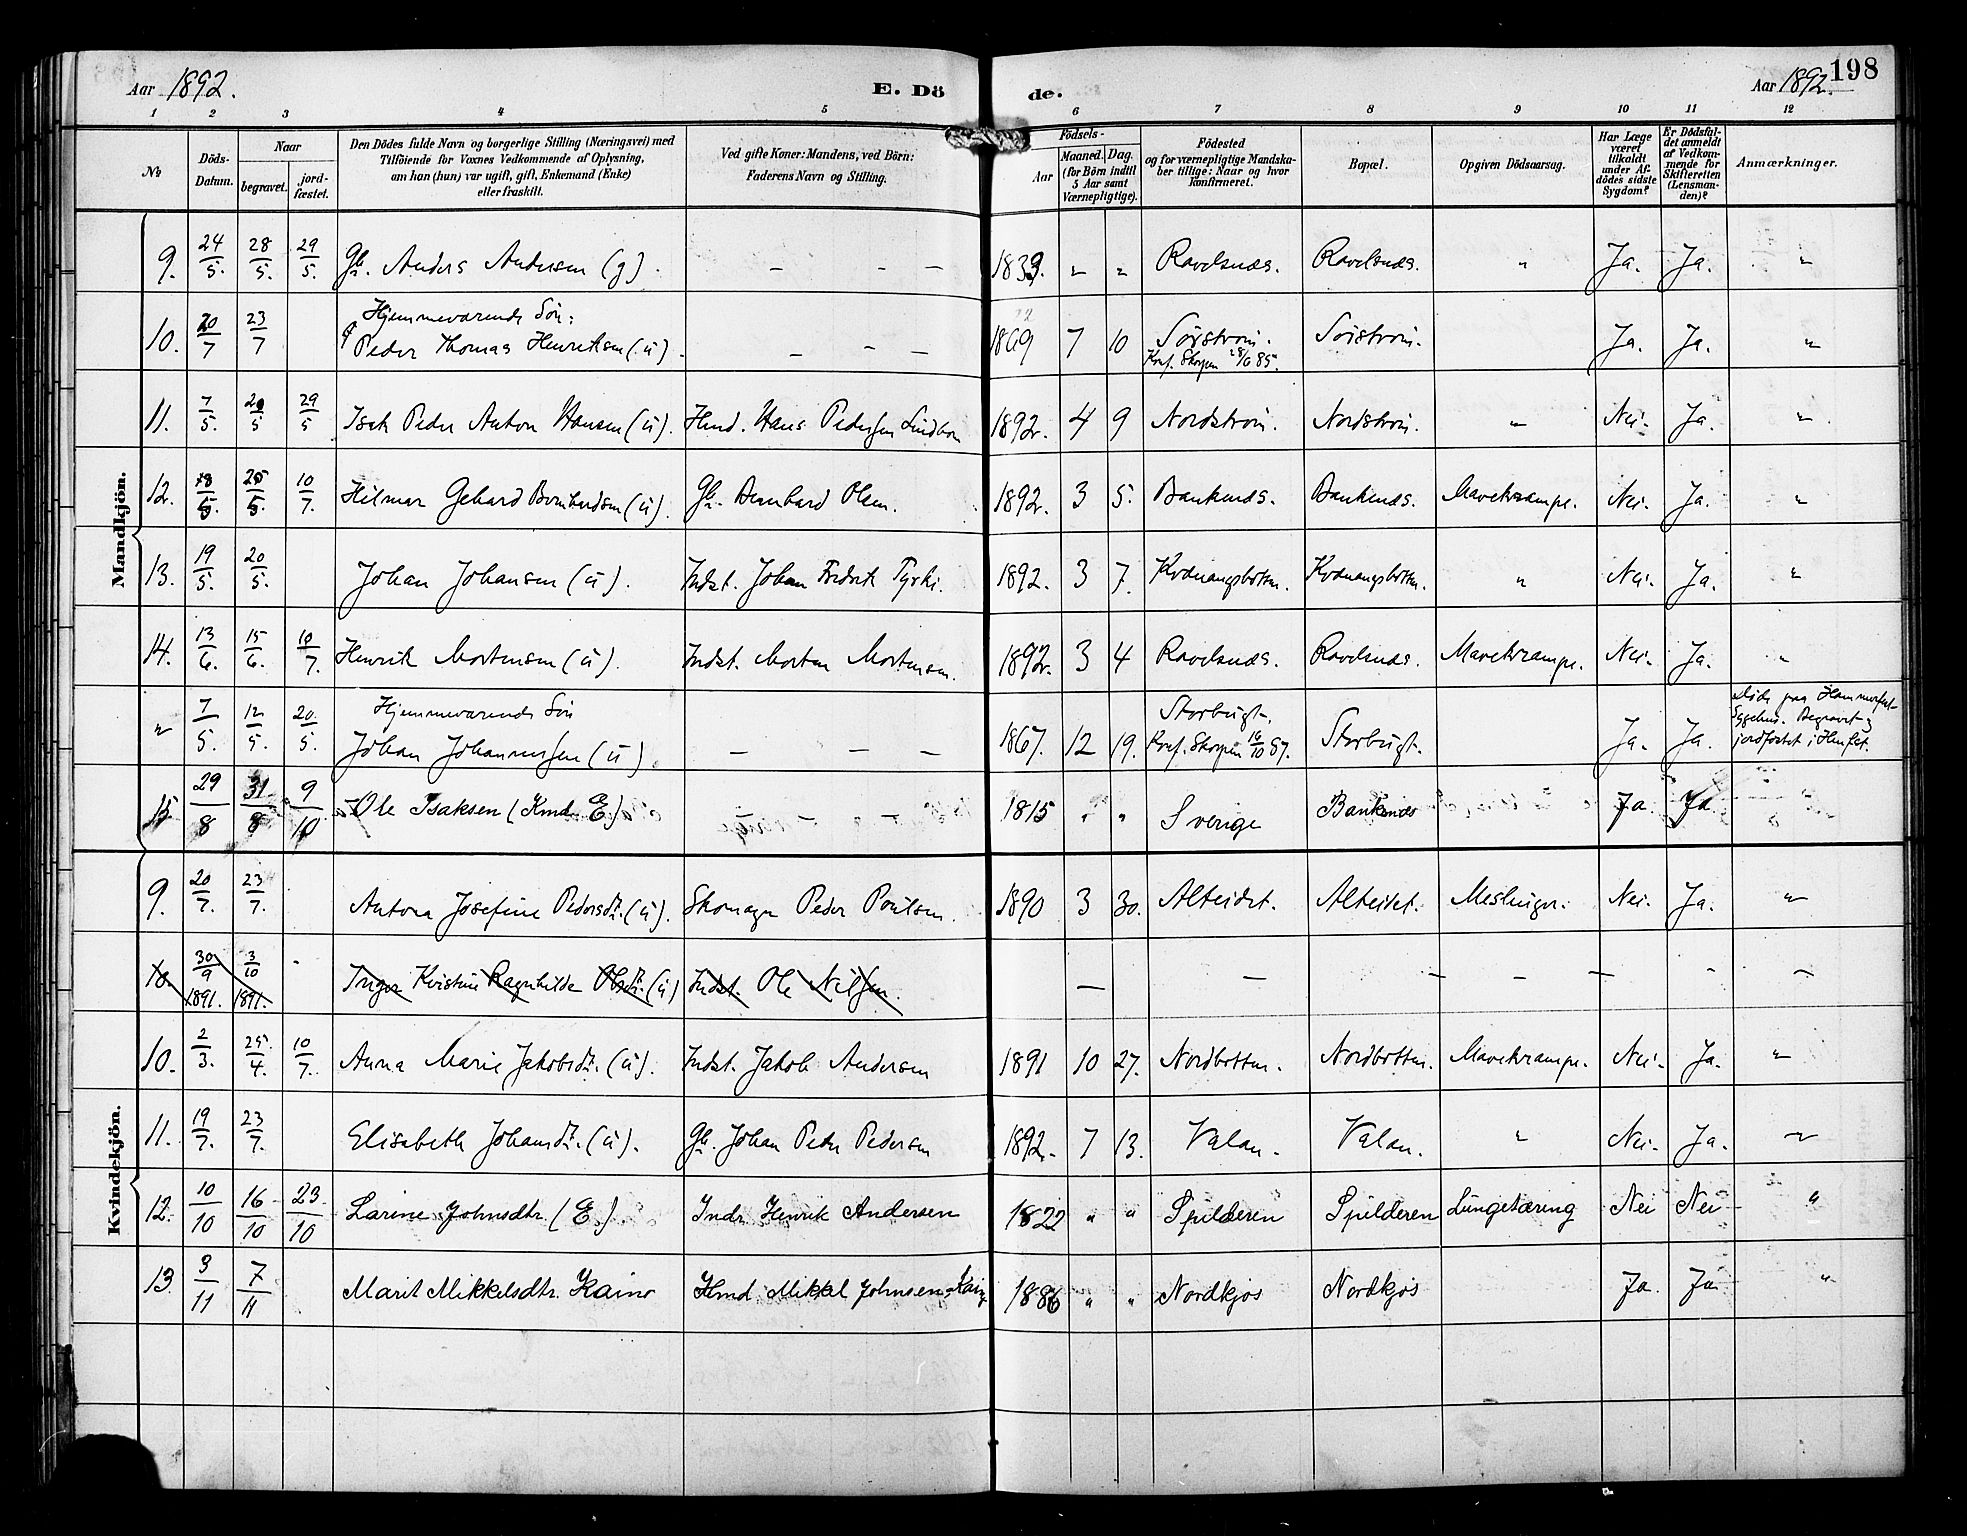 Aar 1892.
E. Dö
de.
Aar 1892.
198
1 2 3 4 5 6 7 8 9 10 11 12
No
Döds-Datum.
Naar
begravet.
jord-fæstet.
Den Dödes fulde Navn og borgerlige Stilling (Næringsvei) med
Tilföiende for Voxnes Vedkommende af Oplysning,
om han (hun) var ugift, gift, Enkemand (Enke)
eller fraskilt.
Ved gifte Koner: Mandens, ved Börn:
Faderens Navn og Stilling.
Födsels-
Aar
Maaned. Dag.
(for Börn indtil
5 Aar samt
Værnepligtige).
Födested
og for værnepligtige Mandska-
ber tillige: Naar og hvor
konfirmeret.
Bopæl.
Opgiven Dödsaarsag.
Har Læge
været
tilkaldt
under Af-
dödes sidste
Sygdom?
Er Dödsfal-
det anmeldt
af Vedkom-
mende for
Skifteretten
(Lensman-
den)?
Anmærkninger.
Mandkjön.
9. 24/5. 28/5. 29/5. Gbr. Anders Andersen (g). — — — 1839. " " Ravelsnæs. Ravelsnæs. " Ja. Ja. "
Hjemmeværende Sön:
10. 20/7 23/7 Peder Thomas Henriksen (ú). — — — 1869 7 10 Sörström. Sörström. Ja. Ja. "
Konf. Skorpen 28/6 85.
11. 7/5. 20/5 29/5 Isak Peder Anton Hansen (ú). Hmd. Hans Pedersen 1892. 4 9 Nordström. Nordström. " Nei. Ja. "
12. 10/7. Hilmar Gehard Bernhardsen (ú). Gbr. Bernhard Olsen. 1892. 3 5. Bankenæs. Bankenæs. Mavekrampe. Nei. Ja. "
13. 19/5. 20/5. Johan Johansen (ú). Indst. Johan Fredrik Tyrki. 1892. 3 7. Kvænangsbotten. Kvænangsbotten. " Nei. Ja. "
14. 13/6. 15/6. 10/7. Henrik Mortensen (ú). Indst. Morten Mortensen. 1892. 3 4 Ravelsnæs. Ravelsnæs. Mavekrampe. Nei. Ja. "
Hjemmeværende Sön
" 7/5. 12/5. 20/5. Johan Johannessen (ú). — — — 1867. 12 19. Storbugt. Storbugt. Ja. Ja.
Konf. Skorpen 16/10 87.
Döde paa Hammerfest
Sygehus. Begravet og
jordfæstet i Hmfst.
15 29/8 31/8 9/10 Ole Isaksen (Kmd E) 1815 " " Sverige Bankenæs Ja Ja
Kvindekjön.
9. 20/7. 23/7. Antora Josefine Pedersdtr. (ú). Skomager Peder Poulsen. 1890 3 30. Alteidet. Alteidet. Meslinger. Nei. Ja. "
10. 30/9 1891. 3/10 1891. Inger Kristine Ragnhilde Olsdtr. (ú) Indst. Ole Nilsen. — — — — — — —
10. 2/3. 25/4. 10/7. Anna Marie Jakobsdtr. (ú). Indst. Jakob Andersen 1891 10 27. Nordbotten. Nordbotten. Mavekrampe. Nei. Ja. "
11. 19/7. 23/7. Elisabeth Johansdtr. (ú). Gbr. Johan Peder Pedersen 1892. 7 13. Valan. Valan. " Nei. Ja. "
12. 10/10 16/10 23/10 Larine Johnsdtr (E) Indr Henrik Andersen 1822 " " Spilderen Spilderen Lungetæring Nei Nei "
13. 3/11 7/11 Marit Mikkelsdtr. Kaino Hmd Mikkel Johnsen Kaino 1886 " " Nordkjos Nordkjos Ja. Ja "